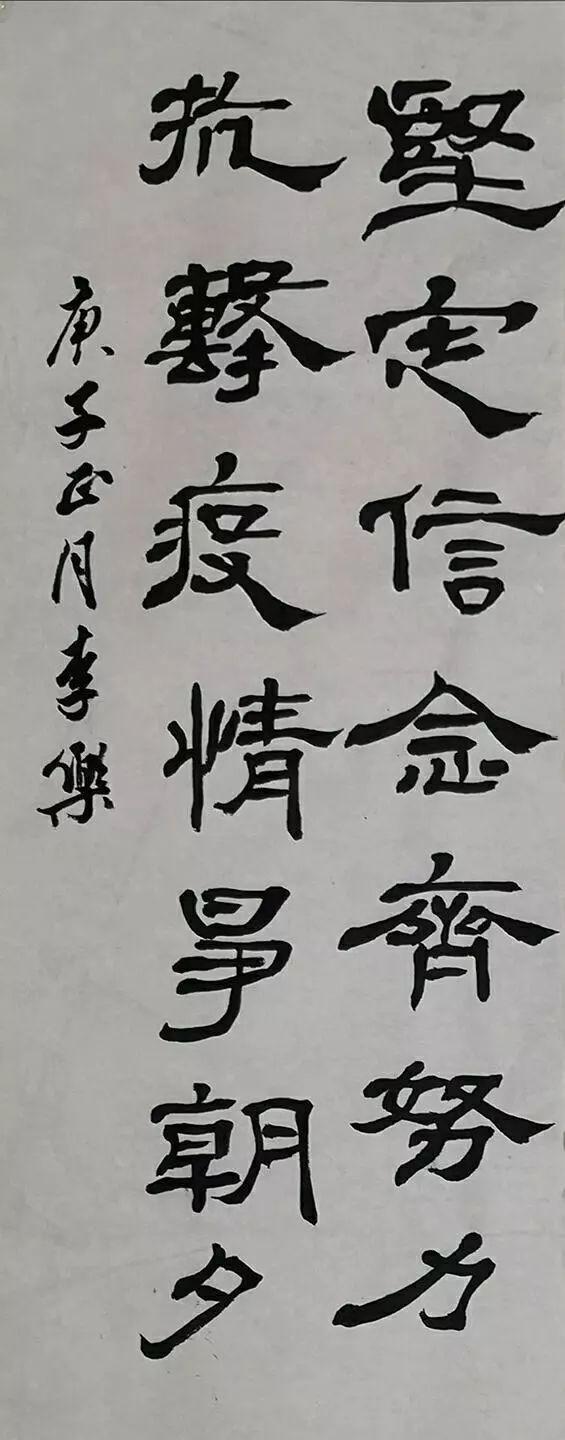 堅定信念齊努力
抗擊疫情爭朝夕
庚子正月李樂